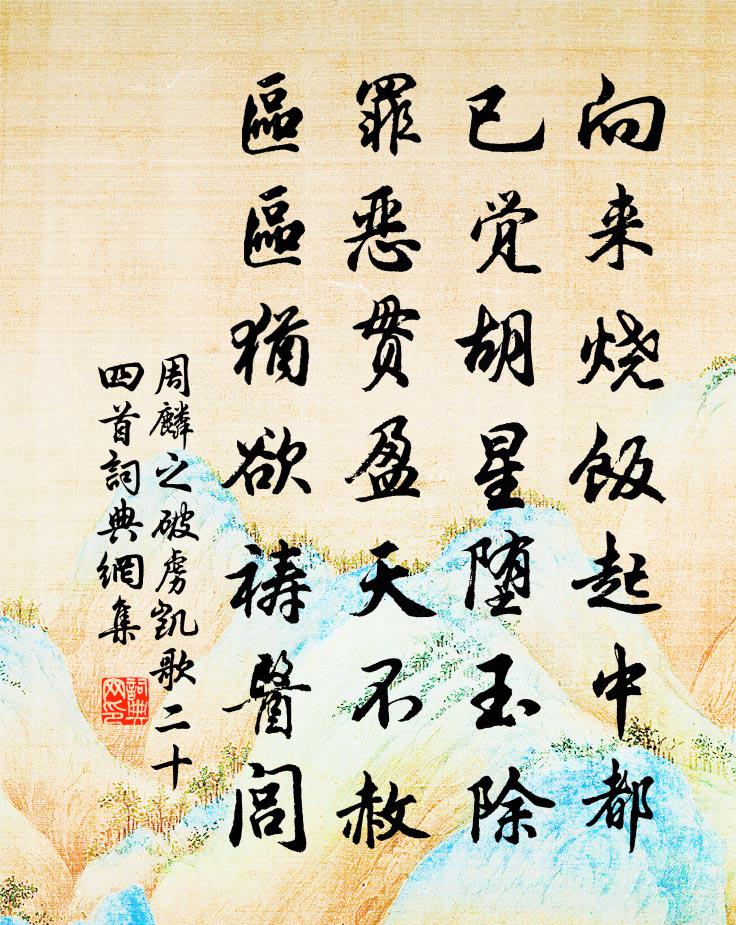 向来烧飯起中都
已觉胡星堕玉除
罪恶贯盈天不赦
區區猶欲祷醫闾
周麟之破虏凱歌二十
四首詞典網集
詞典
网印